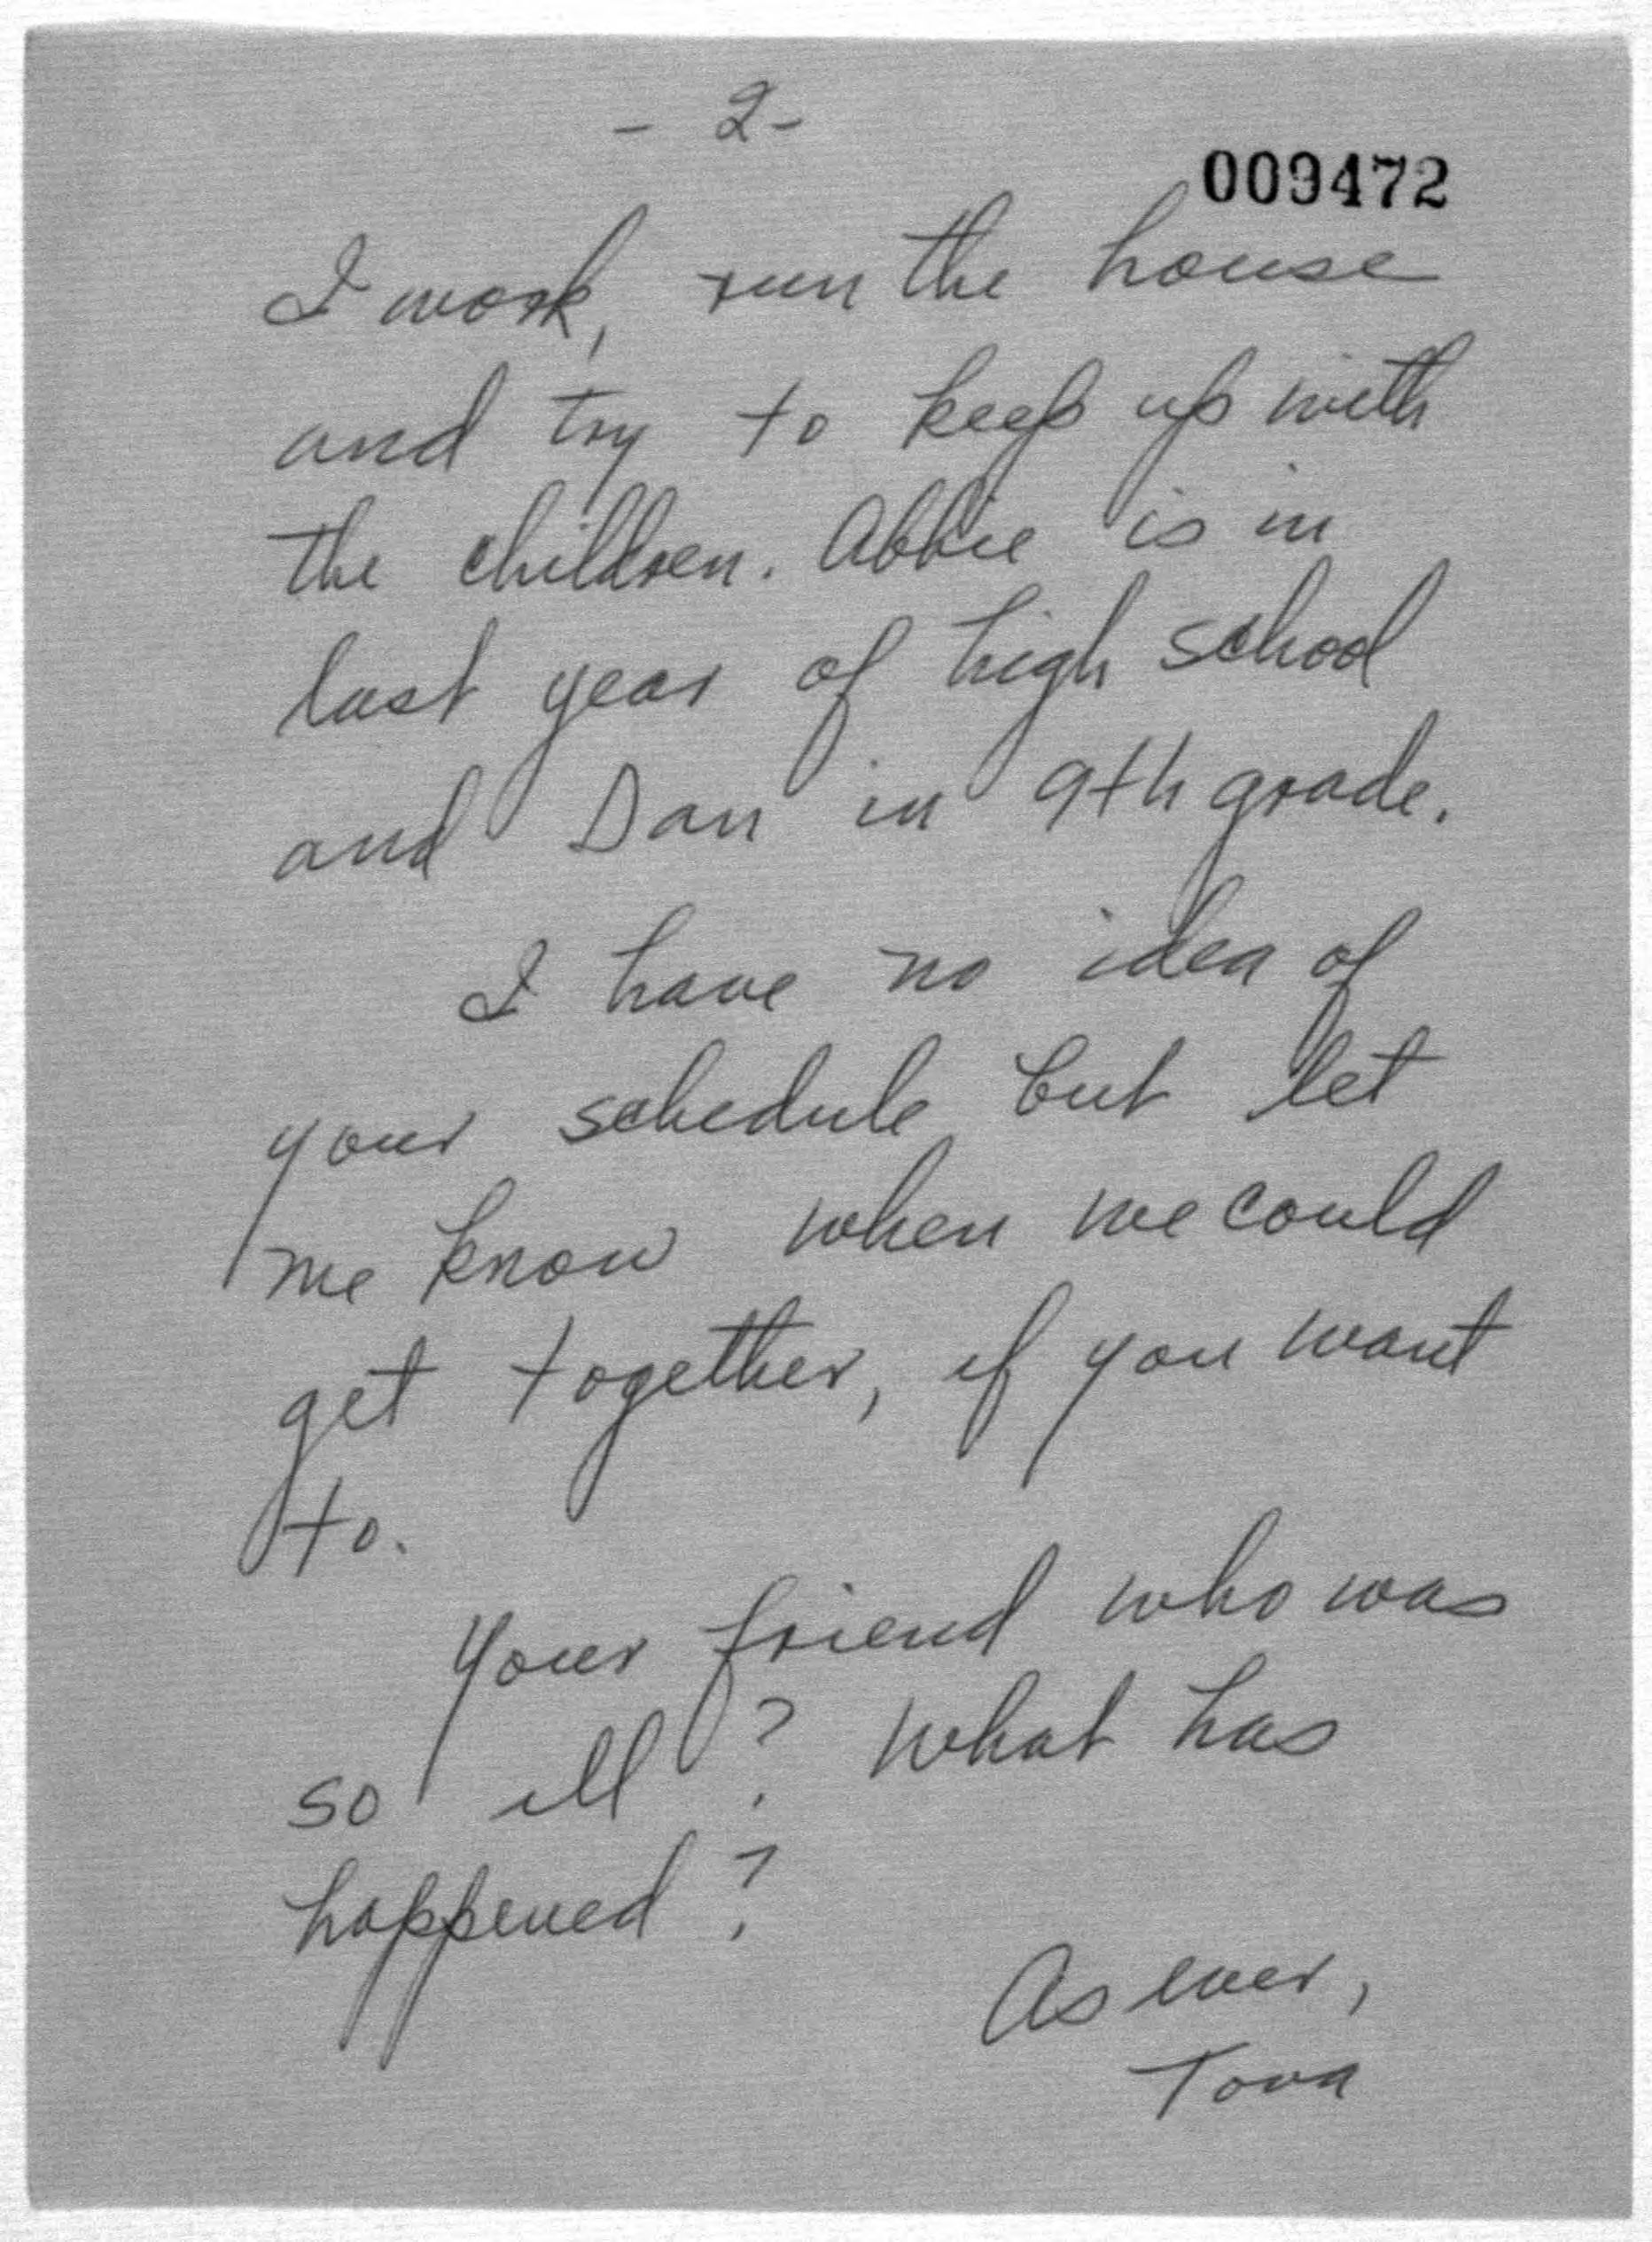 - 2 -
009472
I work, run the house
and try to keep up with
the children. Abbie is in
last year of high school
and Dan in 9th grade.
I have no idea of
your schedule but let
me know when we could
get together, if you want
to.
Your friend who was
so ill? What has
happened?
As ever,
Tova